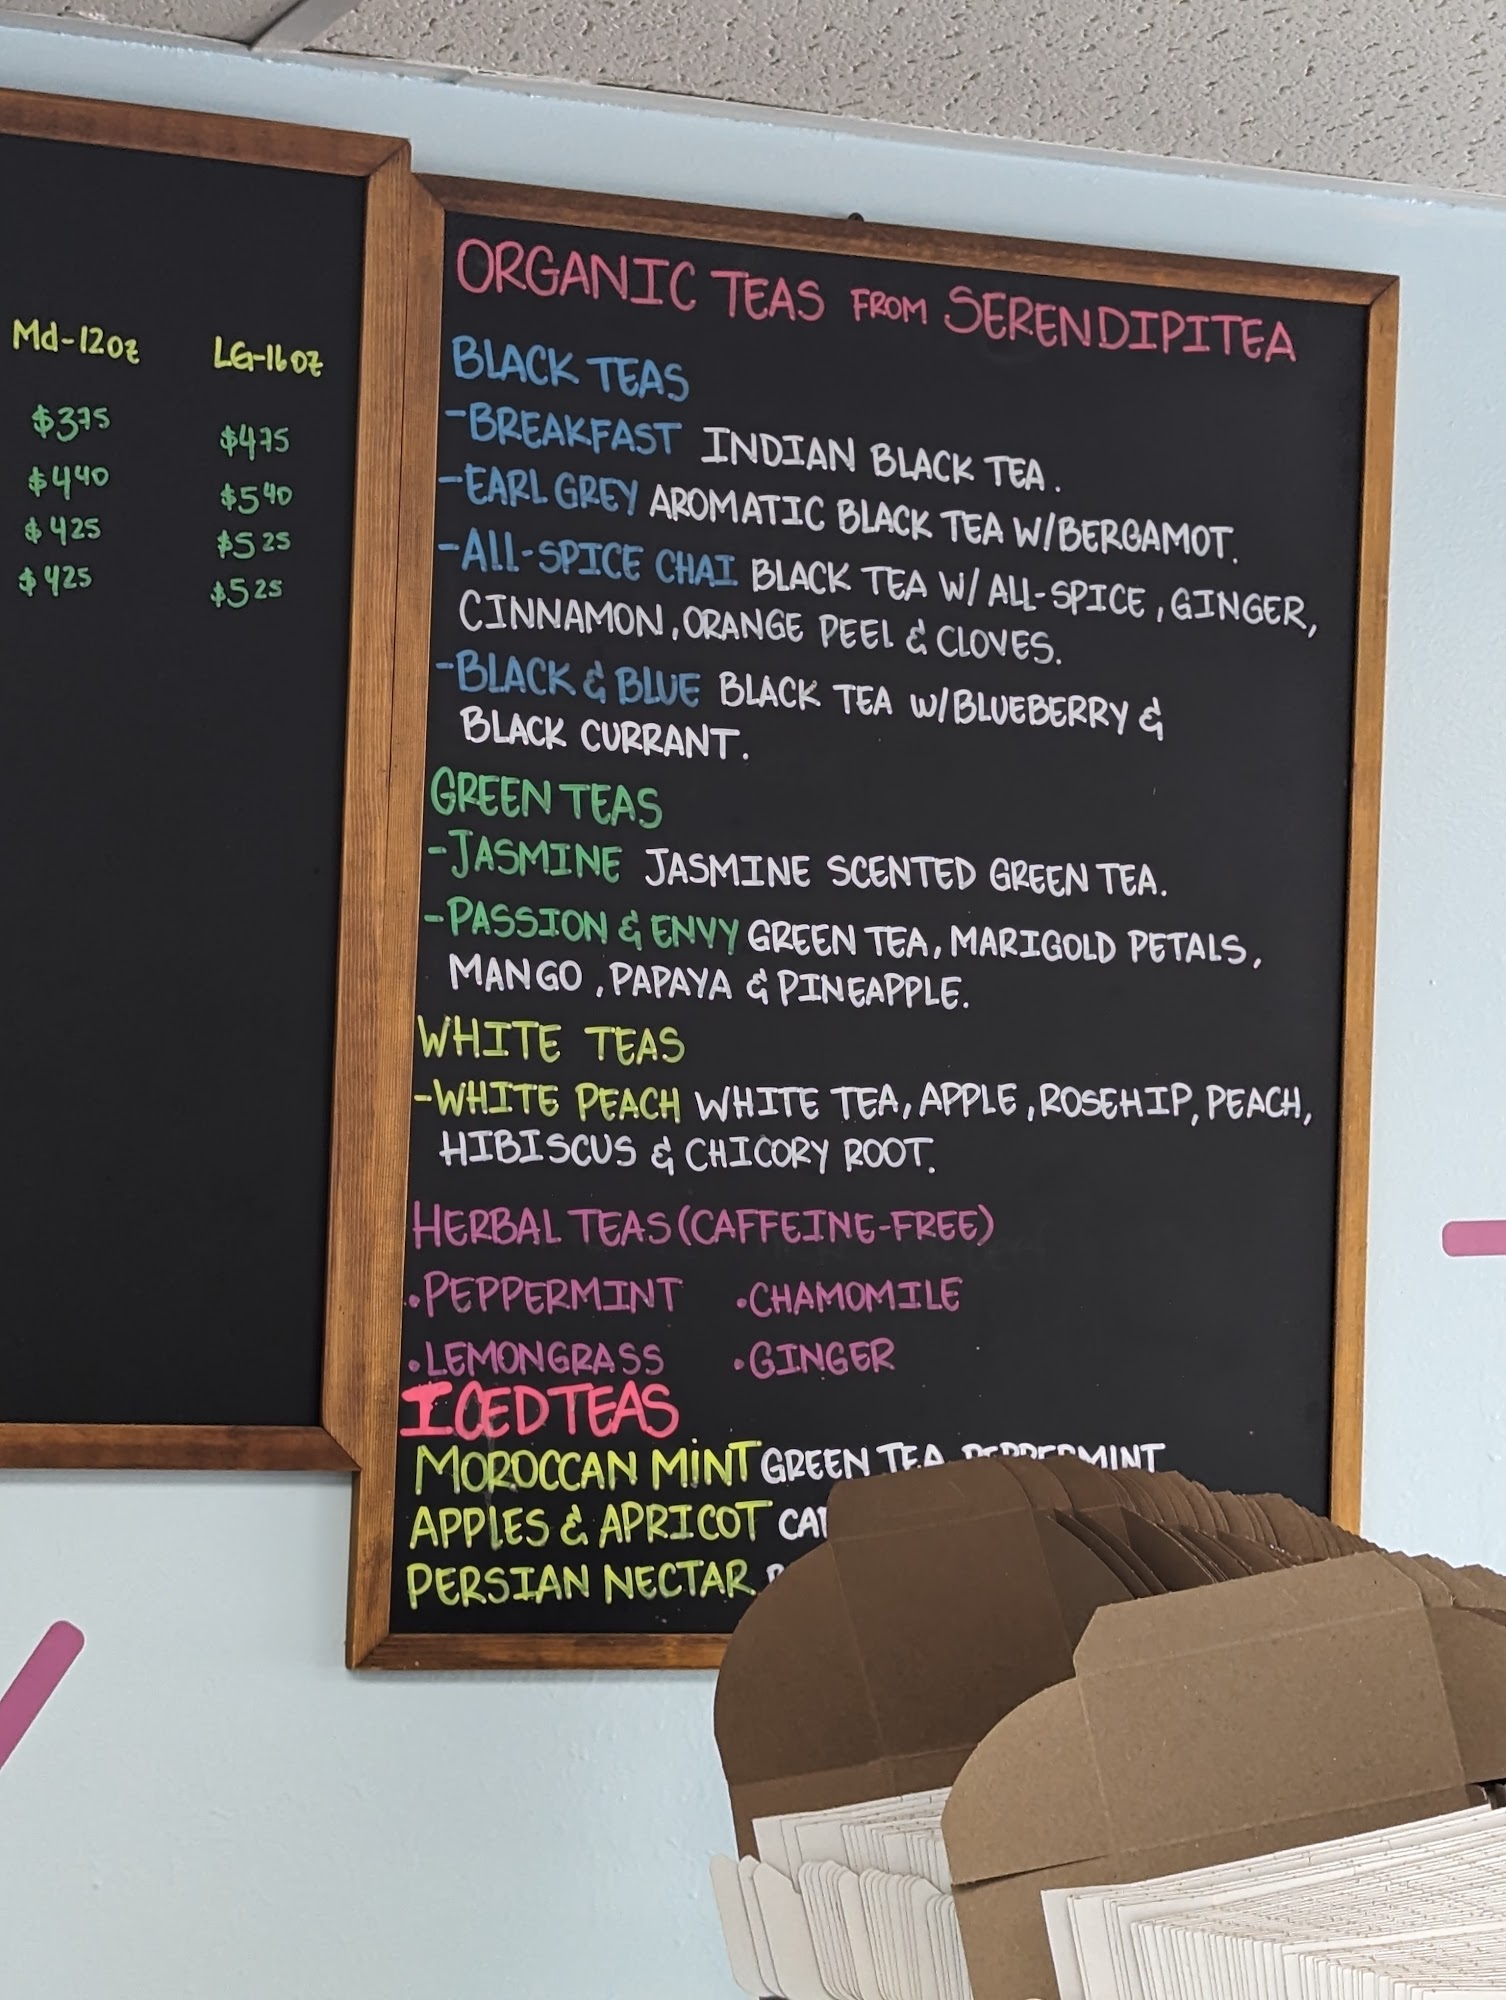 Md-12oz LG-16oz
$3.75 $4.75
$4.40 $5.40
$4.25 $5.25
$4.25 $5.25
ORGANIC TEAS FROM SERENDIPITEA
BLACK TEAS
-BREAKFAST INDIAN BLACK TEA.
-EARL GREY AROMATIC BLACK TEA W/BERGAMOT.
-ALL-SPICE CHAI BLACK TEA W/ ALL-SPICE, GINGER,
CINNAMON, ORANGE PEEL & CLOVES.
-BLACK & BLUE BLACK TEA W/BLUEBERRY &
BLACK CURRANT.
GREEN TEAS
-JASMINE JASMINE SCENTED GREEN TEA.
-PASSION & ENVY GREEN TEA, MARIGOLD PETALS,
MANGO, PAPAYA & PINEAPPLE.
WHITE TEAS
-WHITE PEACH WHITE TEA, APPLE, ROSEHIP, PEACH,
HIBISCUS & CHICORY ROOT.
HERBAL TEAS (CAFFEINE-FREE)
•PEPPERMINT •CHAMOMILE
•LEMONGRASS •GINGER
ICED TEAS
MOROCCAN MINT GREEN TEA PEPPERMINT
APPLES & APRICOT
PERSIAN NECTAR